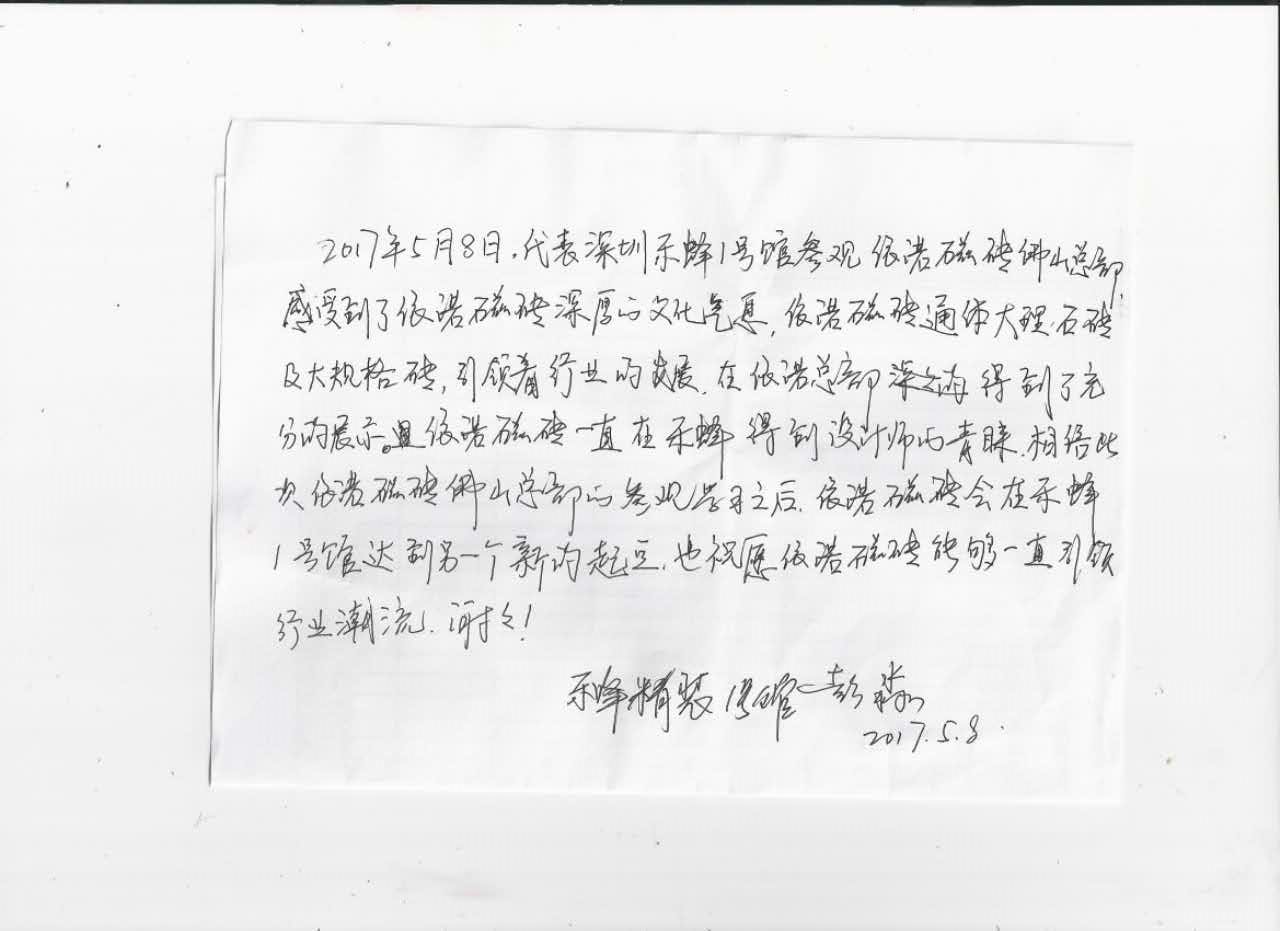 2017年5月8日.代表深圳禾蜂1号馆参观依诺磁砖佛山总部,
感受到了依诺磁砖深厚的文化气息,依诺磁砖通体大理石砖
及大规格砖,引领着行业的发展.在依诺总部 得到了充
分的展示。且依诺磁砖一直在禾蜂得到设计师的青睐.相信此
次依诺磁砖佛山总部的参观学习之后.依诺磁砖会在禾蜂
1号馆达到另一个新的起点.也祝愿依诺磁砖能够一直引领
行业潮流.谢谢!
禾蜂精装1号馆—彭淼
2017.5.8.